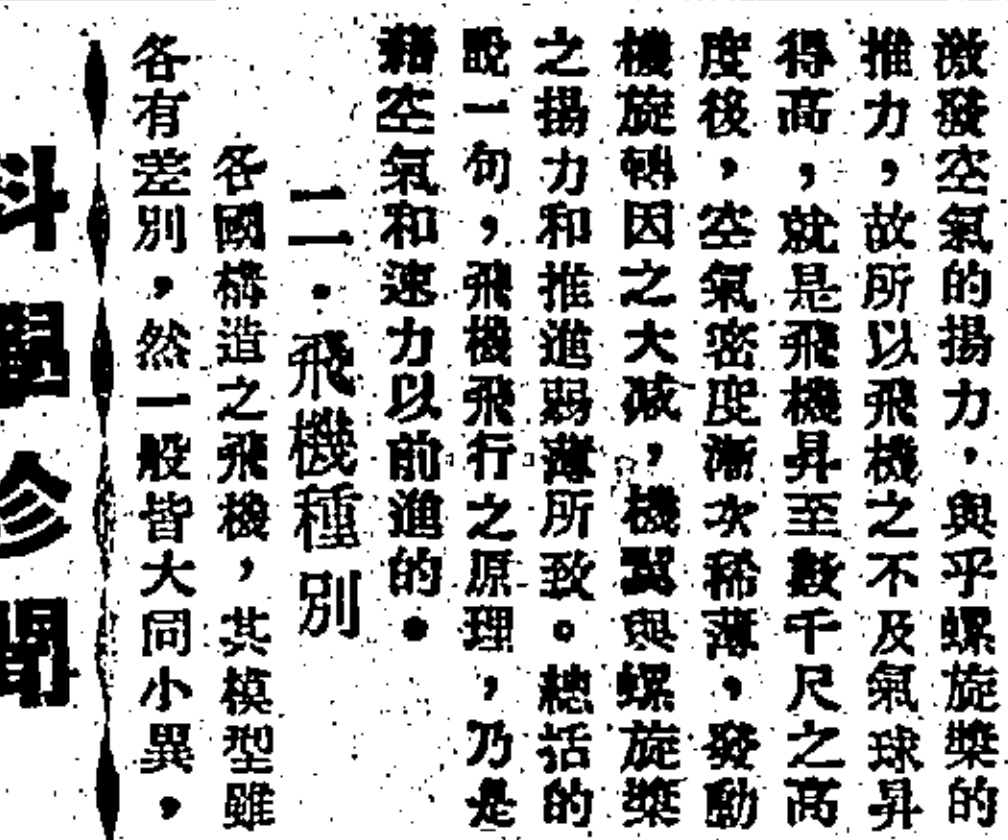 激發空氣的揚力，與乎螺旋槳的
推力，故所以飛機之不及氣球昇
得高，就是飛機昇至數千尺之高
度後，空氣密度漸次稀薄，發動
機旋轉因之大减，機翼與螺旋槳
之揚力和推進弱薄所致。總話的
說一句，飛機飛行之原理，乃是
藉空氣和速力以前進的．
二．飛機種別
各國構造之飛機，其模型雖
各有差別，然一般皆大同小異，
科學珍聞